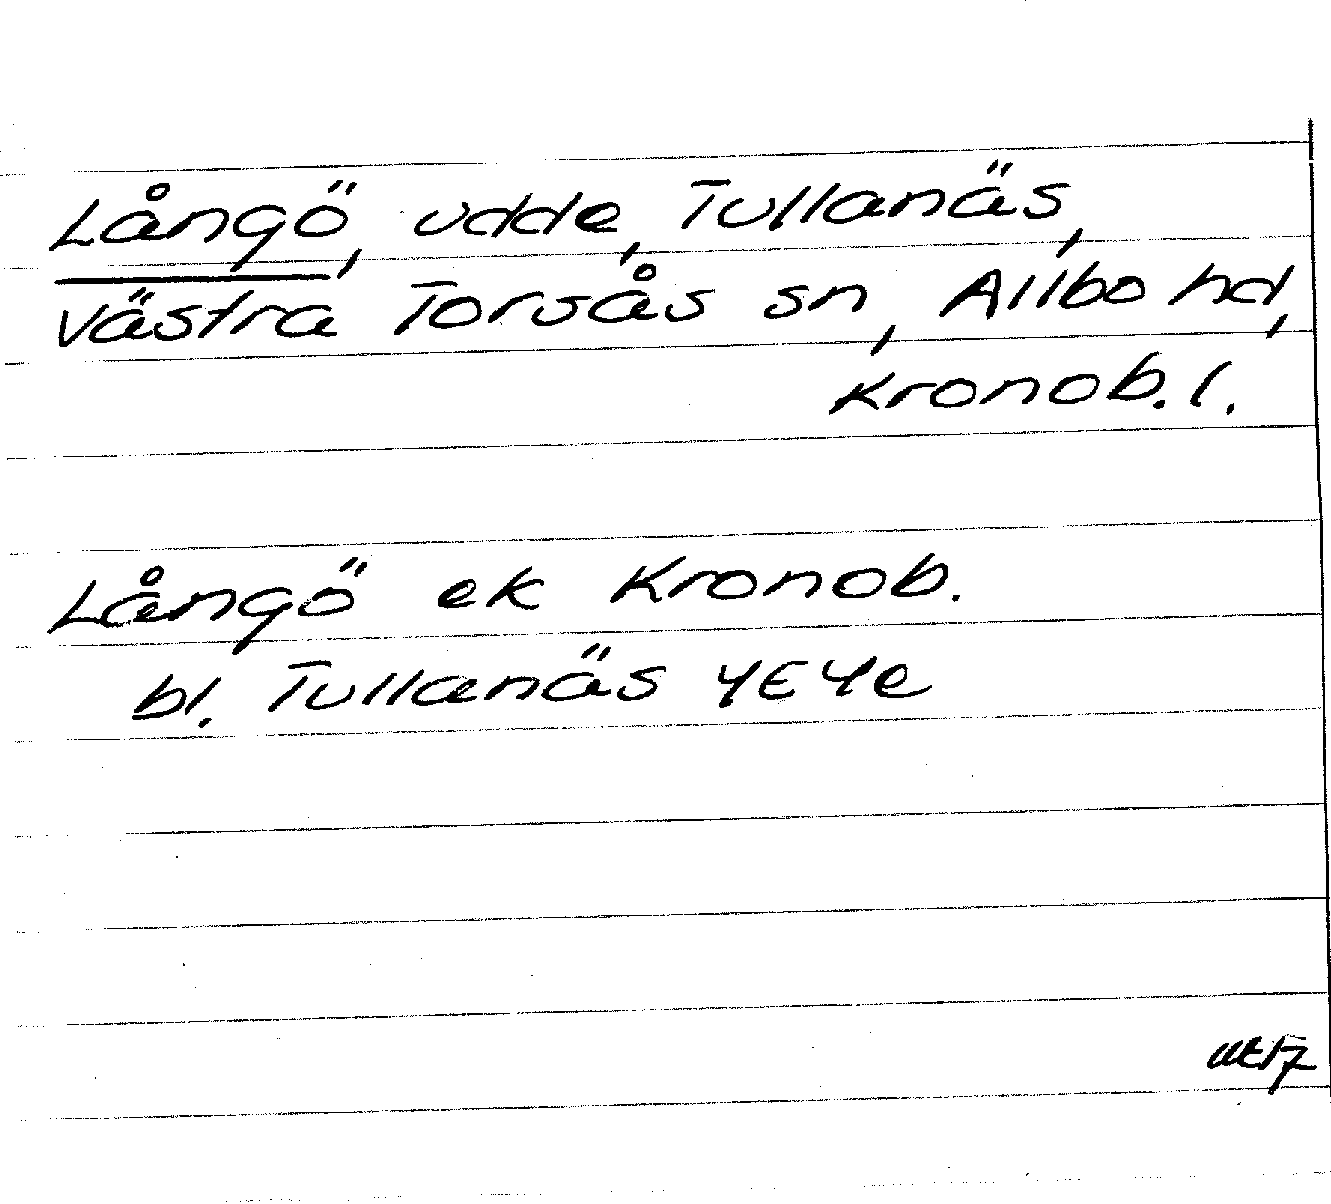 Långö, udde, Tullanäs,
Västra Torsås sn, Allbo hd,
Kronob. l.
Långö ek Kronob.
bl. Tullanäs 4E4e